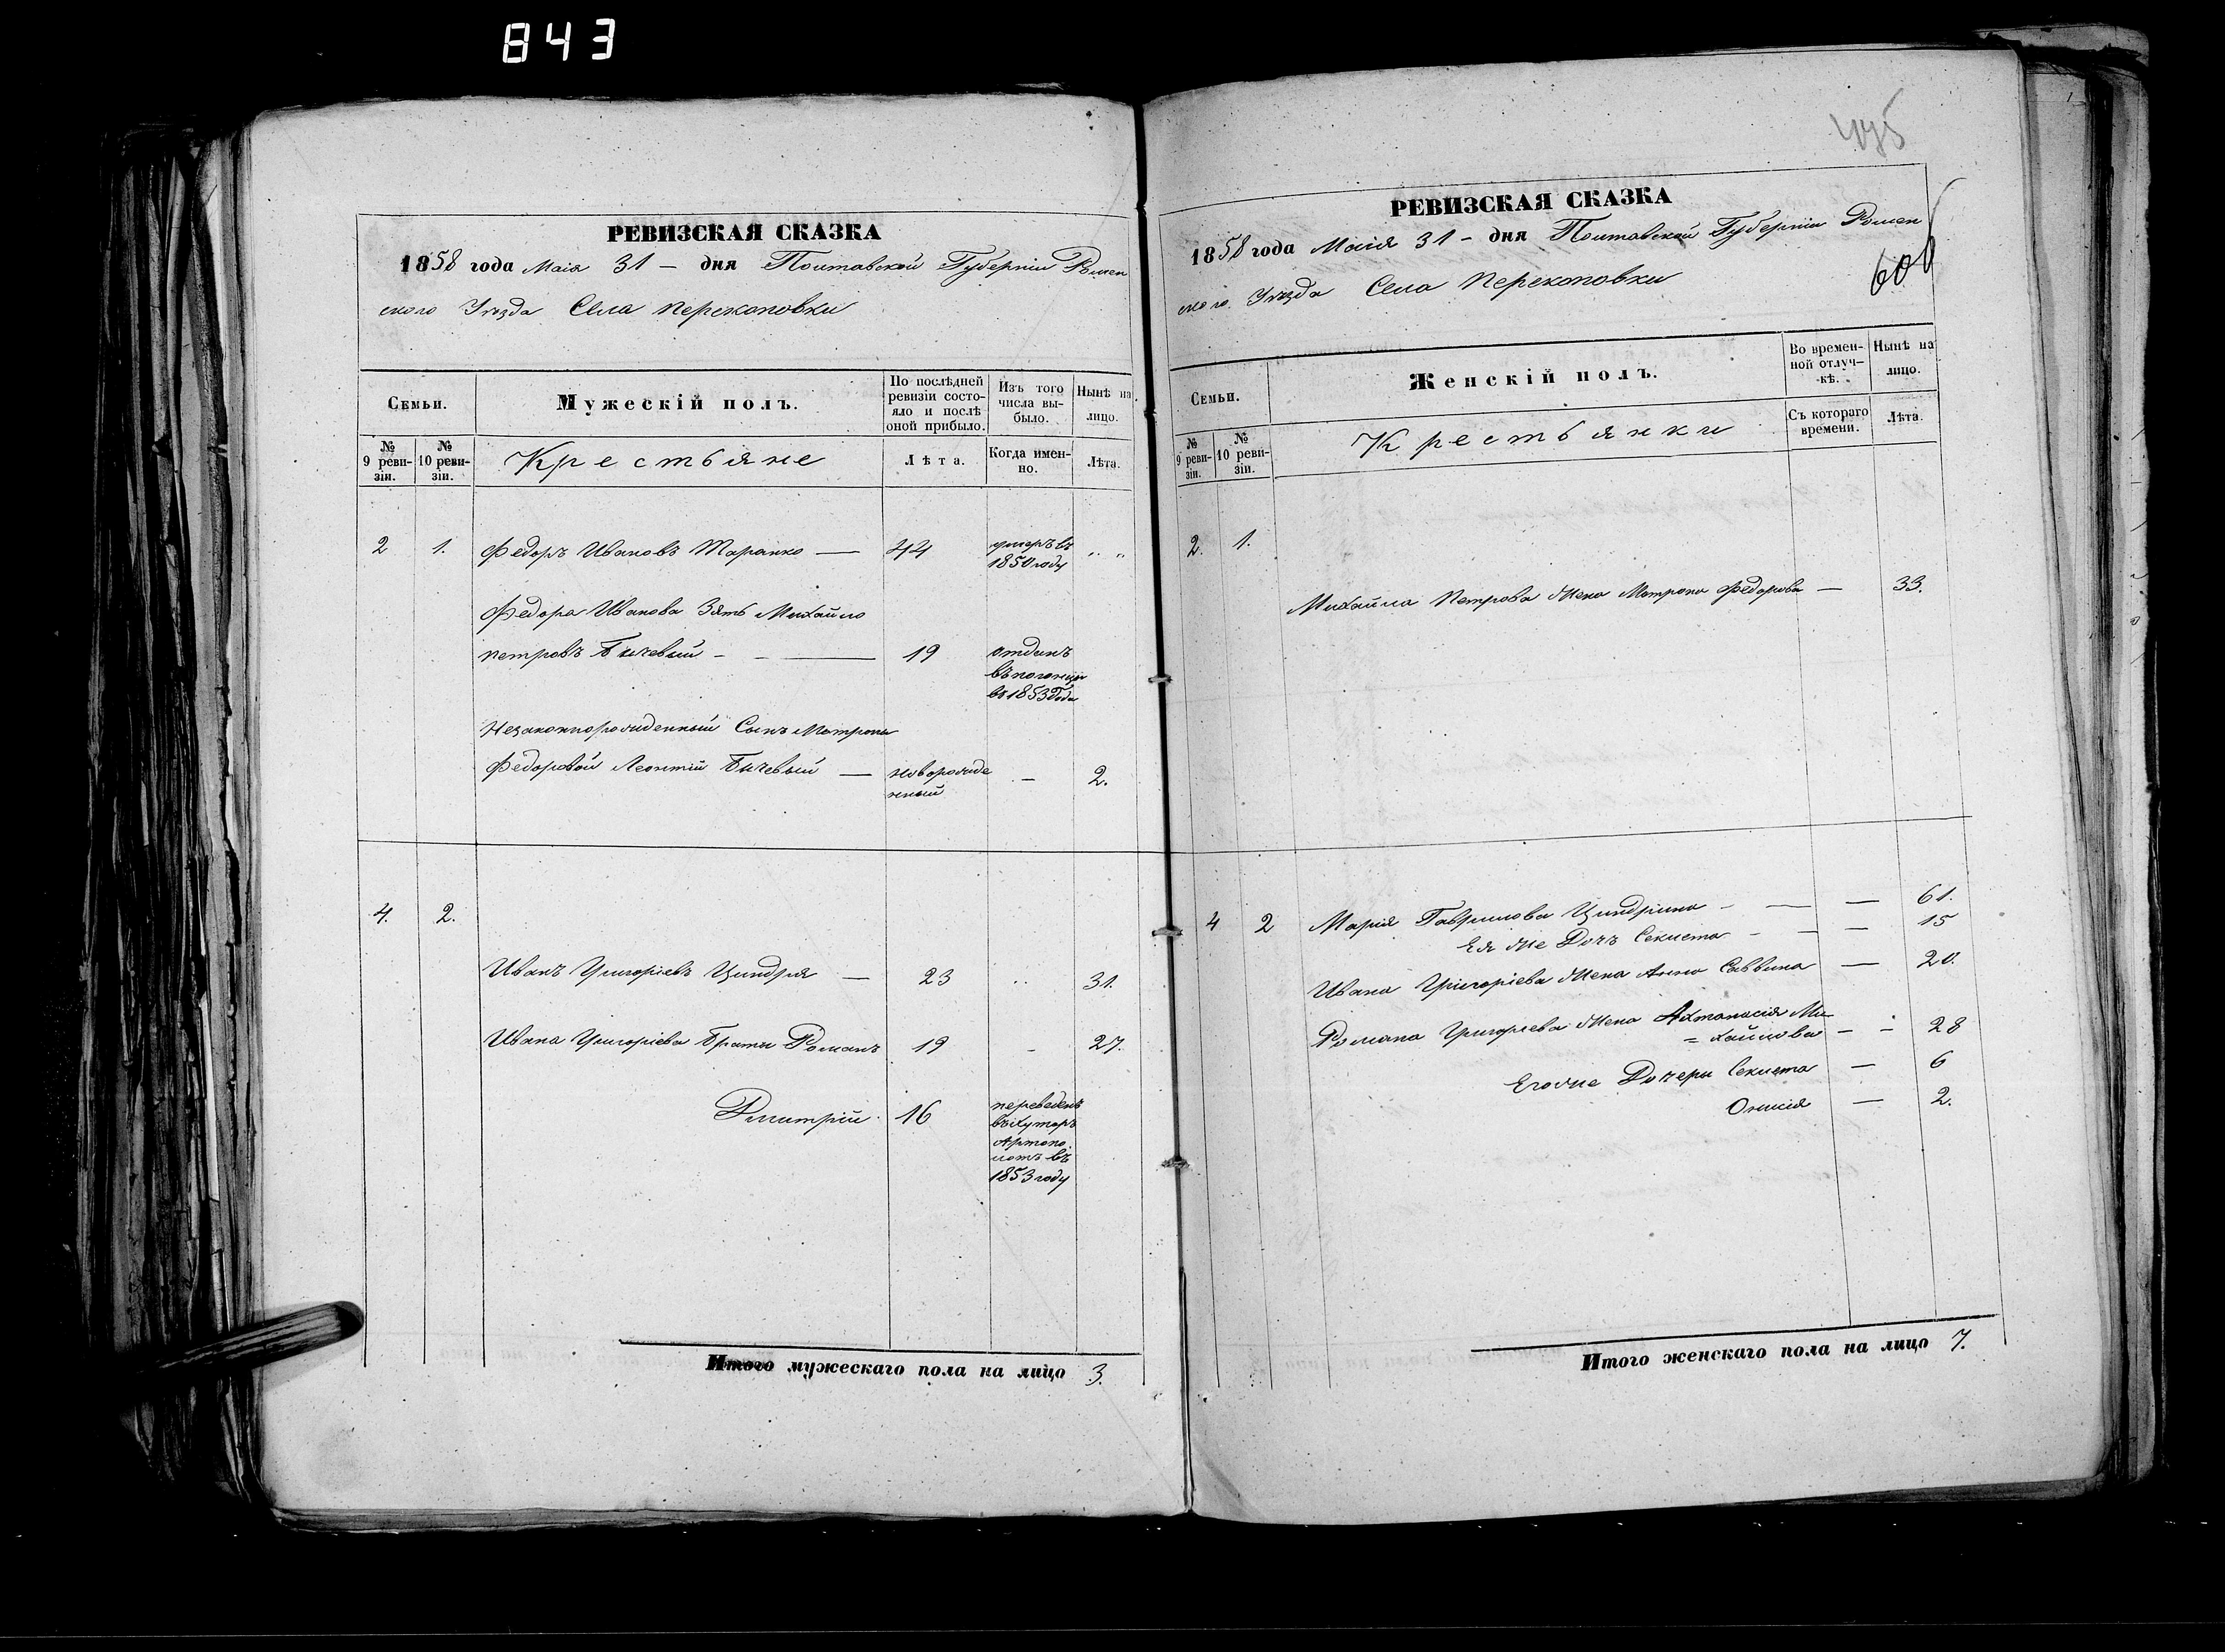 843
РЕВИЗСКАЯ СКАЗКА
1858 года Маія 31 — дня Полтавской Губерніи Ромен
ского Уѣзда Села Перекоповки
Семьи.
Мужескій полъ.
По послѣдней ревизіи состояло и послѣ оной прибыло.
Изъ того числа выбыло.
Нынѣ на лицо.
№ 9 ревизіи.
№ 10 ревизіи.
Крестьяне
Лѣта.
Когда именно.
Лѣта.
2 1. Федоръ Ивановъ Таранко — 44 умеръ въ 1850 году „ „
Федора Иванова Зять Михайло
Петровъ Бичевый — 19 отданъ въ 1853 года
Незаконнорожденный Сынъ Матроны
Федоровой Леонтій Бичевый — новорожде
нный — 2.
4. 2.
Иванъ Григоріевъ Циндря — 23 .. 31.
Ивана Григоріева Братья Романъ 19 — 27.
Дмитрій 16 переведенъ
въ хуторъ
Артопо
лотъ въ
1853 году
Итого мужескаго пола на лицо 3.
475
РЕВИЗСКАЯ СКАЗКА
1858 года Маія 31 — дня Полтавской Губерніи Ромен
ского Уѣзда Села Перекоповки
608
Семьи.
Женскій полъ.
Во временной отлучкѣ.
Нынѣ на лицо.
№ 9 ревизіи.
№ 10 ревизіи.
Крестьянки
Съ котораго времени.
Лѣта.
2. 1.
Михайла Петрова Жена Матрона Федорова — 33.
4 2 Марія Гаврилова Циндрина — — — 61.
Ея же Дочь Секлета — — — 15
Ивана Григоріева Жена Анна Саввина — 20.
Романа Григоріева Жена Ми
= хайлова — — 28
Егоже Дочери Секлета — 6
Онисія — 2.
Итого женскаго пола на лицо 7.